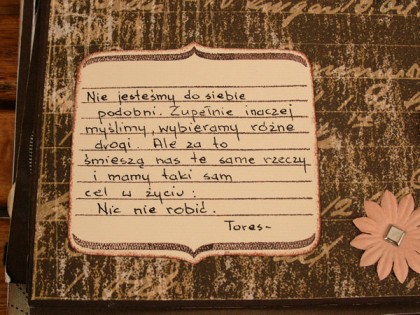 Nie jesteśmy do siebie
podobni. Zupełnie inaczej
myślimy, wybieramy różne
drogi. Ale za to
śmieszą nas te same rzeczy
i mamy taki sam
cel w życiu:
Nic nie robić.
Toras~